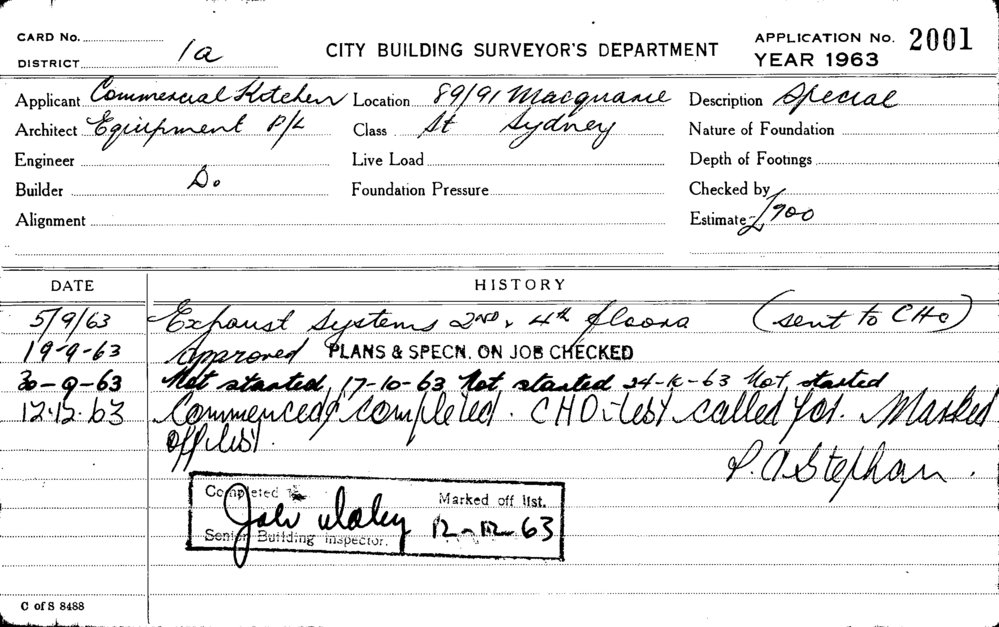 CARD No.
DISTRICT 1a
CITY BUILDING SURVEYOR'S DEPARTMENT
APPLICATION No. 2001
YEAR 1963
Applicant Commercial Kitchen Location 89/91 Macquarie Description Special
Architect Equipment P/L Class St Sydney Nature of Foundation
Engineer Live Load Depth of Footings
Builder Do Foundation Pressure Checked by
Alignment Estimate £900
DATE HISTORY
5/9/63 Exhaust Systems 2ND & 4th floors (sent to CHO)
19-9-63 Approved PLANS & SPECN. ON JOB CHECKED
30-9-63 Not started, 17-10-63 Not started 24-10-63 Not started
12.12.63 Commenced & completed. CHO. test called for. Marked
off list.
P. A. Stephan.
Completed Marked off list.
12-12-63
Senior Building Inspector.
C of S 8488